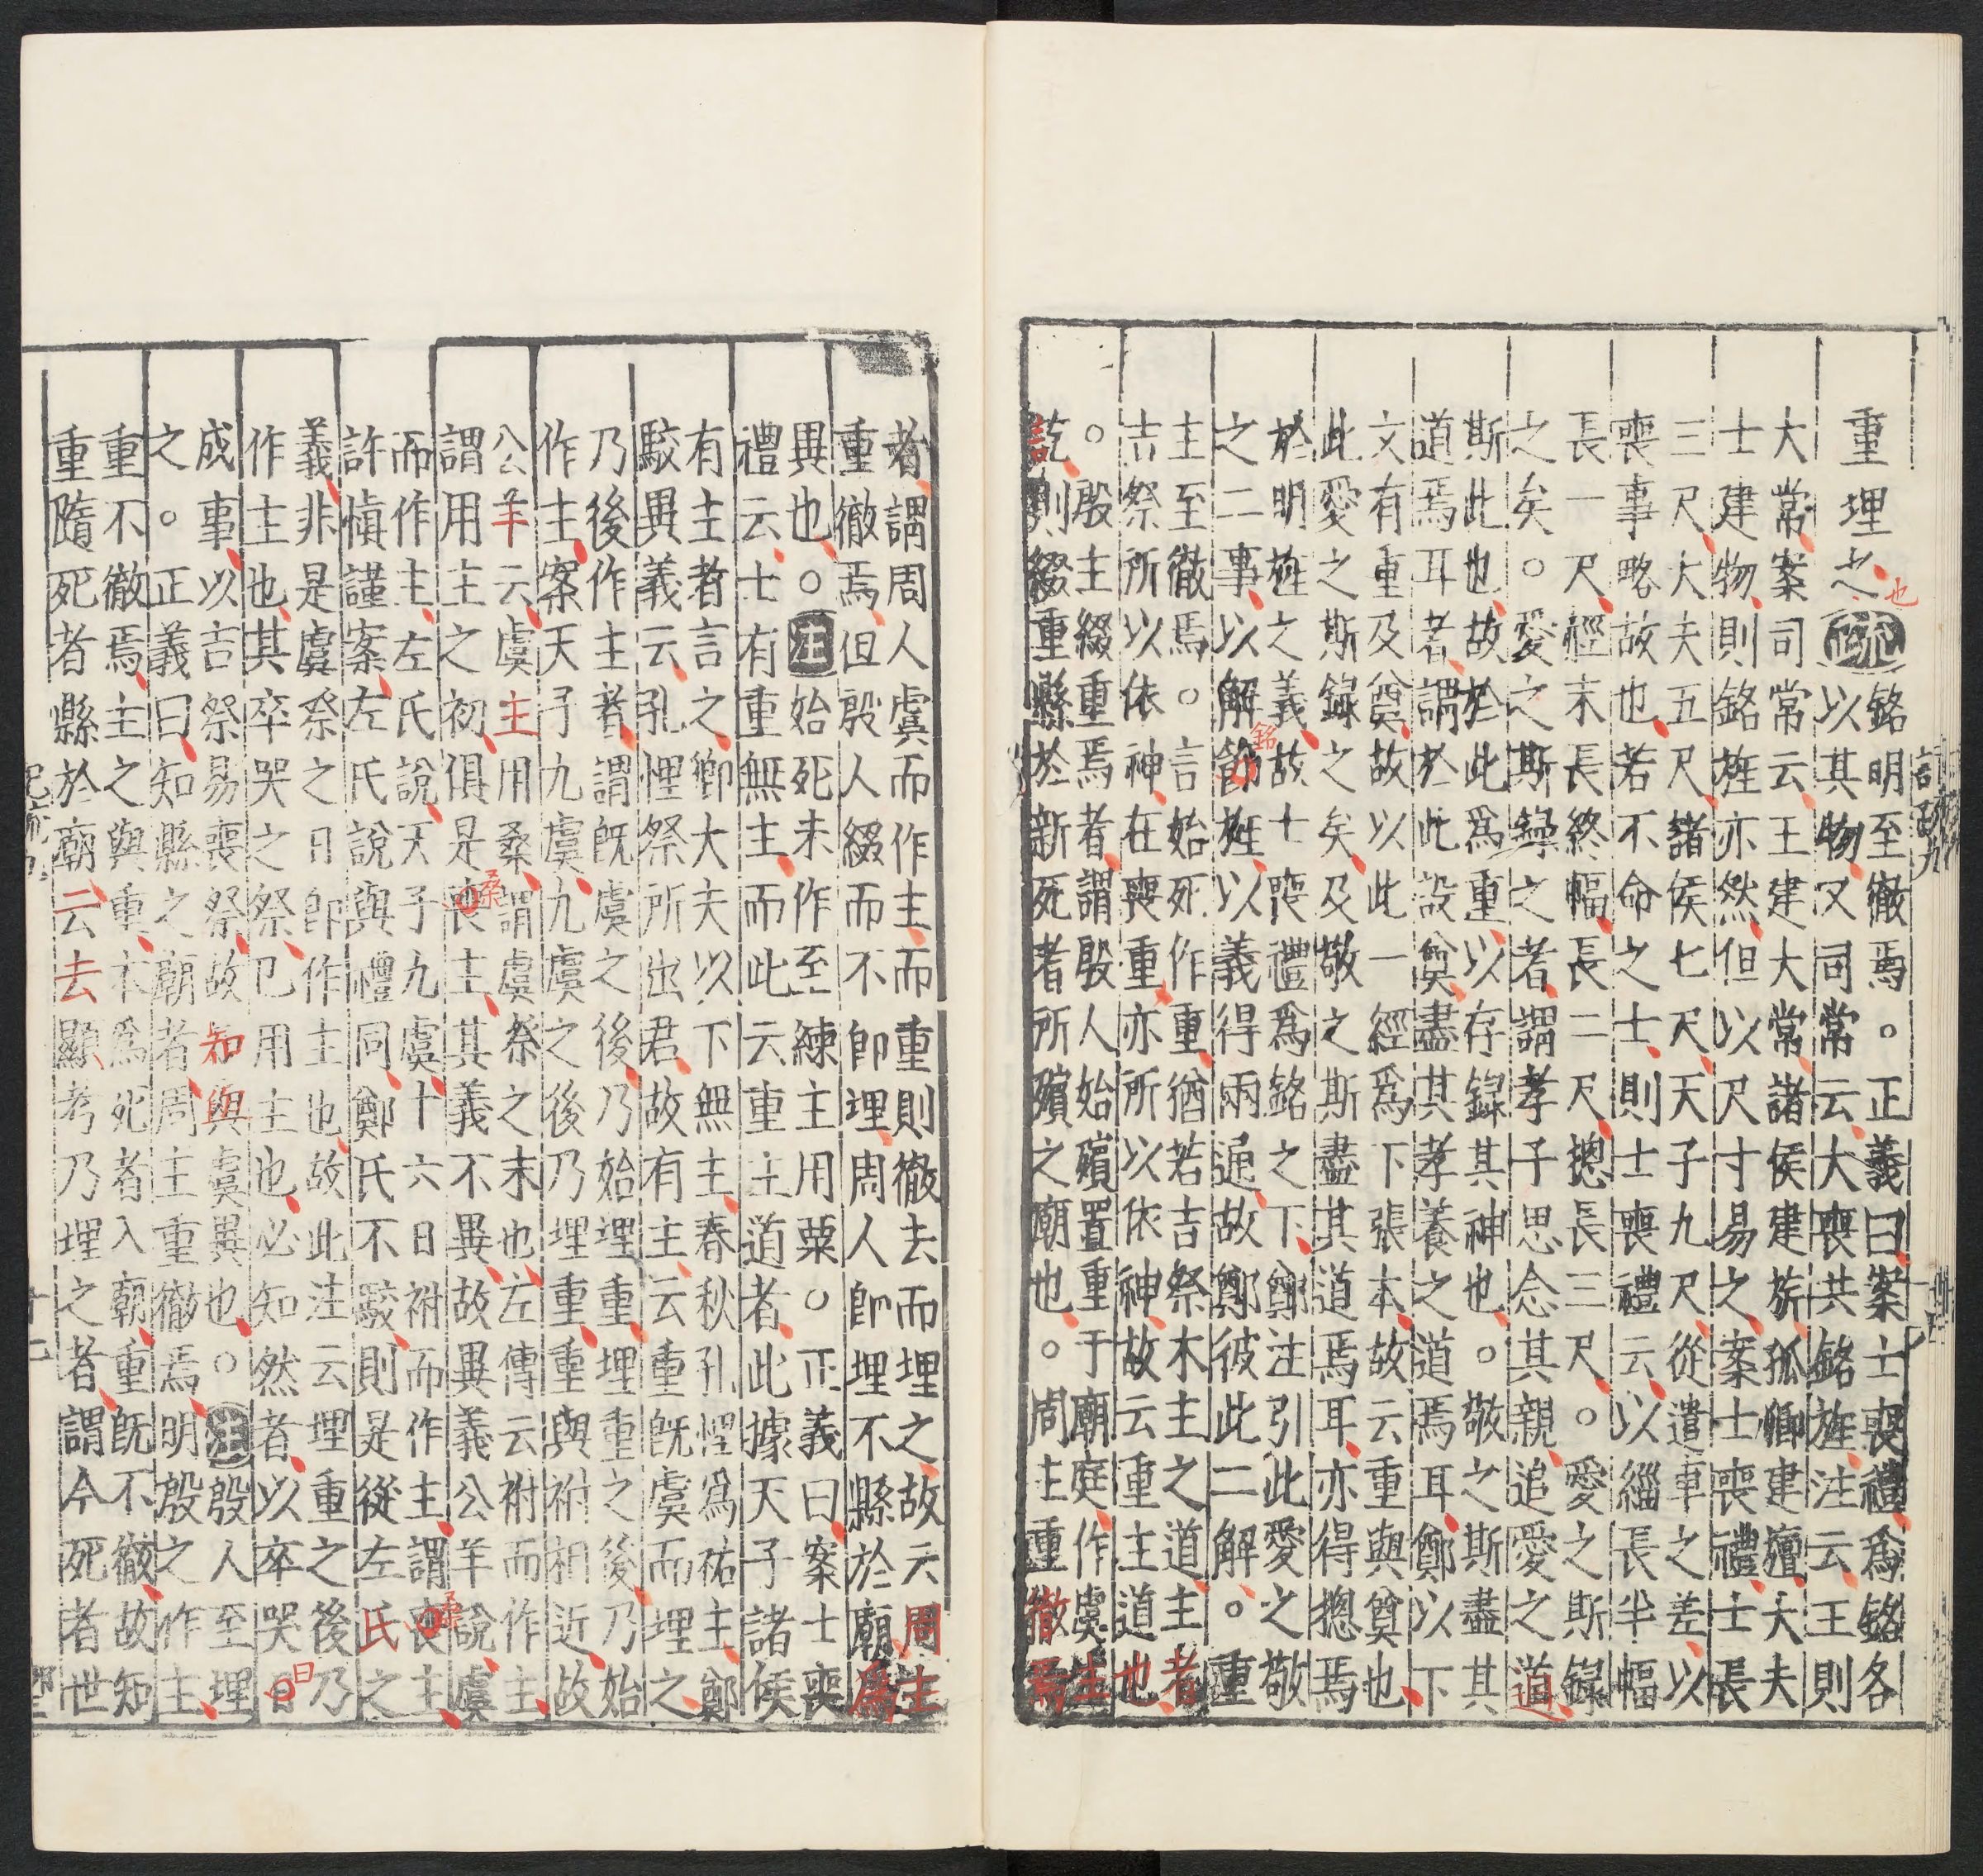 重埋之也疏銘明至徹焉。正義曰案士喪禮爲銘各
以其物又司常云大喪共銘旌注云王則
大常案司常云王建大常諸侯建旂孤卿建旜大夫
士建物則銘旌亦然但以尺寸易之案士喪禮士長
三尺大夫五尺諸侯七尺天子九尺從遣車之差以
喪事略故也若不命之士則士喪禮云以緇長半幅
長一尺經末長終幅長二尺揔長三尺。愛之斯録
之矣。愛之斯録之者謂孝子思念其親追愛之道
斯此也故於此爲重以存録其神也。敬之斯盡其
道焉耳者謂於此設奠盡其孝養之道焉耳鄭以下
文有重及奠故以此一經爲下張本故云重與奠也
此愛之斯録之矣及敬之斯盡其道焉耳亦得揔焉
於明旌之義故士喪禮爲銘之下鄭注引此愛之敬
之二事以解節銘旌以義得兩通故鄭彼此二解。重
主至徹焉。言始死作重猶若吉祭木主之道主者
吉祭所以依神在喪重亦所以依神故云重主道也
。殷主綴重焉者謂殷人始殯置重于廟庭作虞主
訖則綴重縣於新死者所殯之廟也。周主重徹焉
者謂周人虞而作主而重則徹去而埋之故云周主
重徹焉但殷人綴而不即埋周人即埋不縣於廟爲
異也。注始死未作至練主用栗。正義曰案士喪
禮云士有重無主而此云重主道者此據天子諸侯
有主者言之卿大夫以下無主春秋孔悝爲祐主鄭
駮異義云孔悝祭所出君故有主云重既虞而埋之
乃後作主者謂既虞之後乃始埋重埋重之後乃始
作主案天子九虞九虞之後乃埋重重與祔相近故
公羊云虞主用桑謂虞祭之末也左傳云祔而作主
謂用主之初俱是喪桑主其義不異故異義公羊說虞
而作主左氏說天子九虞十六日祔而作主謂喪桑主
許慎謹案左氏說與禮同鄭氏不駮則是從左氏之
義非是虞祭之日即作主也故此注云埋重之後乃
作主也其卒哭之祭已用主也必知然者以卒哭曰日
成事以吉祭易喪祭故知與虞異也。注殷人至埋
之。正義曰知縣之廟者周主重徹焉明殷之作主
重不徹焉主之與重本爲死者入廟重既不徹故知
重隨死者縣於廟云去顯考乃埋之者謂今死者世